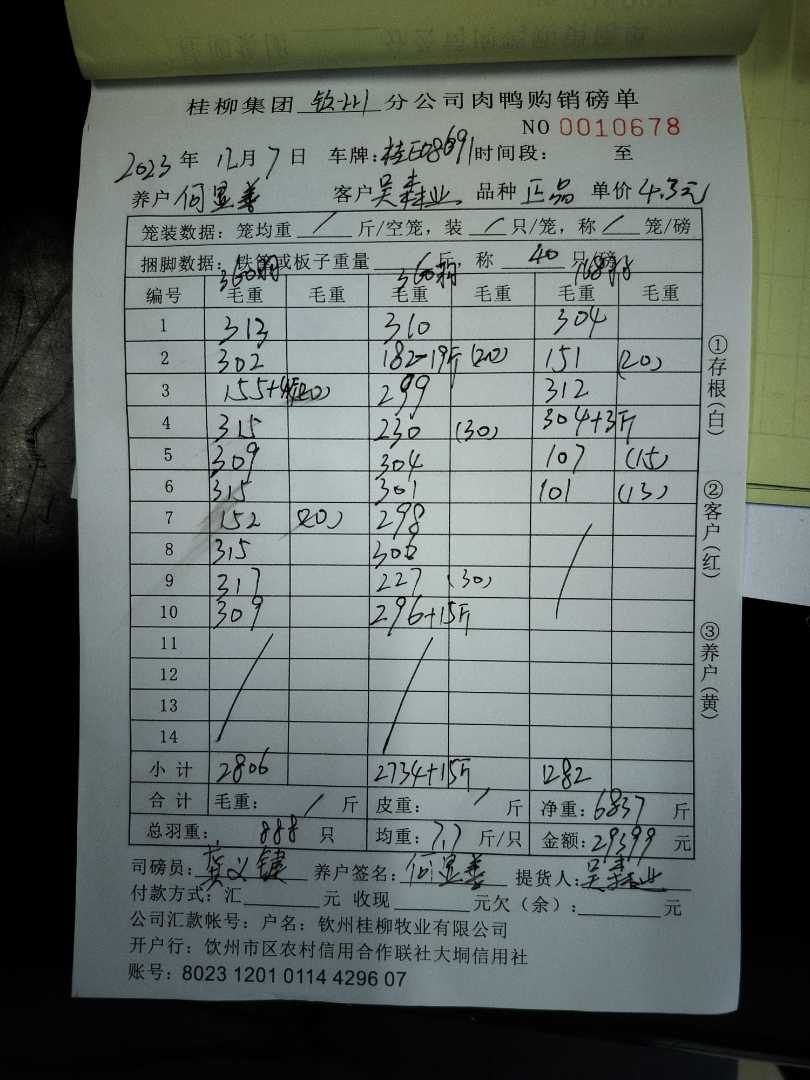 桂柳集团 钦州 分公司肉鸭购销磅单
NO 0010678
2023 年 12 月 7 日 车牌: 桂E08691 时间段: 至
养户 何显善 客户 吴森业 品种 正品 单价 4.3元
笼装数据: 笼均重 / 斤/空笼, 装 / 只/笼, 称 / 笼/磅
捆脚数据: 或板子重量 6 斤 称 40 只/磅
360 360 168
编号 毛重 毛重 毛重 毛重 毛重 毛重
1 313 310 304
2 302 182-19斤 (20) 151 (20)
3 155+ (20) 299 312
4 315 230 (30) 304+3斤
5 309 304 107 (15)
6 315 301 101 (13)
7 152 (20) 298
8 315 306
9 317 227 (30)
10 309 296+15斤
11
12
13
14
小计 2806 2734+15斤 1282
合计 毛重: / 斤 皮重: / 斤 净重: 6837 斤
总羽重: 888 只 均重: 7.7 斤/只 金额: 29399 元
司磅员: 养户签名: 何显善 提货人: 吴森业
付款方式: 汇 元 收现 元欠(余): 元
公司汇款帐号: 户名: 钦州桂柳牧业有限公司
开户行: 饮州市区农村信用合作联社大垌信用社
账号: 8023 1201 0114 4296 07
①存根(白)
②客户(红)
③养户(黄)